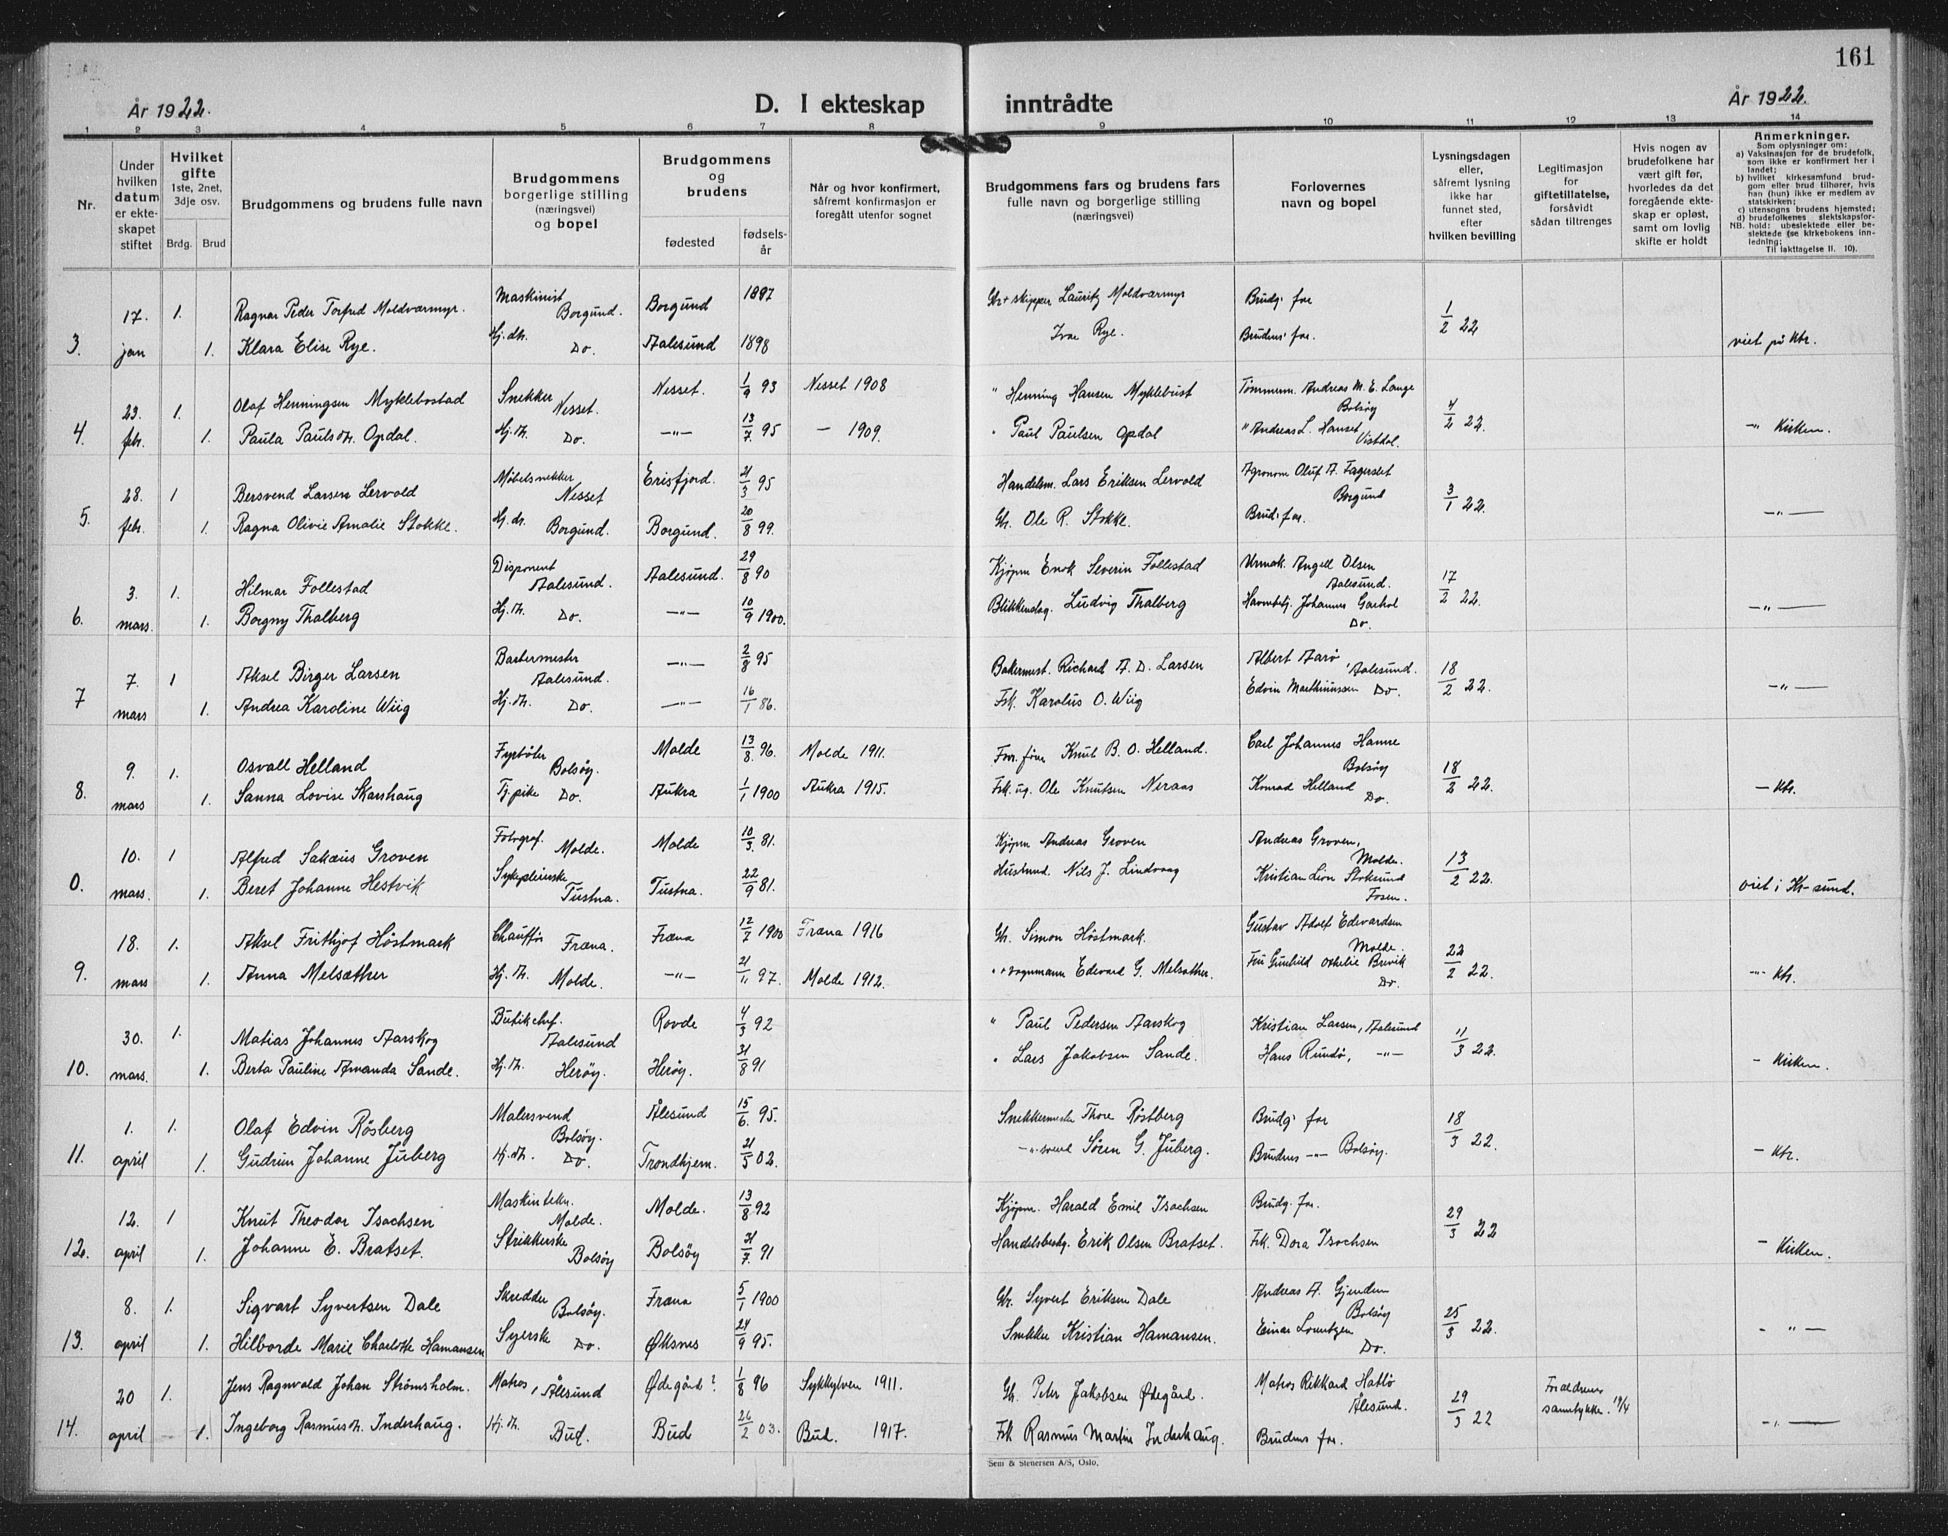 161
År 1922.
D. I ekteskap inntrådte
År 1922.
1 2 3 4 5 6 7 8 9 10 11 12 13 14
Nr.
Under hvilken datum er ekte-skapet stiftet
Hvilket gifte
1ste, 2net, 3dje osv.
Brdg. Brud
Brudgommens og brudens fulle navn
Brudgommens borgerlige stilling (næringsvei) og bopel
Brudgommens og brudens
fødested
fødsels-år
Når og hvor konfirmert, såfremt konfirmasjon er foregått utenfor sognet
Brudgommens fars og brudens fars fulle navn og borgerlige stilling (næringsvei)
Forlovernes navn og bopel
Lysningsdagen eller, såfremt lysning ikke har funnet sted, efter hvilken bevilling
Legitimasjon for giftetillatelse, forsåvidt sådan tiltrenges
Hvis nogen av brudefolkene har vært gift før, hvorledes da det foregående ekte-skap er opløst, samt om lovlig skifte er holdt
Anmerkninger.
Som oplysninger om:
a) Vaksinasjon for de brudefolk, som ikke er konfirmert her i landet;
b) hvilket kirkesamfund brud-gom eller brud tilhører, hvis han (hun) ikke er medlem av statskirken;
c) utensogns brudens hjemsted;
d) brudefolkenes slektskapsfor-hold: ubeslektede eller be-slektede (se kirkebokens inn-ledning;
NB. Til iakttagelse II. 10).
3. 17. jan 1. Ragnar Peder Torfred Moldværmyr. Maskinist Borgund. Borgund 1897 Gbr + skipper Lauritz Moldværmyr Brudg. far 1/2 22
1. Klara Elise Rye. Hj. dtr. Do. Aalesund 1898 Ivar Rye. Brudens far. viet på ktr.
4. 23. febr. 1. Olaf Henningsen Myklebostad Snekker Nesset. Nesset. 1/9 93 Nesset 1908 " Henning Hansen Myklebust Tømmerm. Andreas M. E. Lange Bolsøy 4/2 22.
1. Paula Paulsdtr. Opdal. Hj. dt. Do. —"— 13/7 95 — 1909. " Paul Paulsen Opdal " Andreas L. Hanset Vistdal. —" Kirken.
5. 28. febr. 1 Bersvend Larsen Lervold Møbelsnekker Nesset Erisfjord. 21/3 95 Handelsm. Lars Eriksen Lervold Agronom Oluf A. Fagerslet Borgund 3/1 22.
1. Ragna Olivie Amalie Stokke. Hj. dt. Borgund. Borgund. 20/8 99. Gbr. Ole R. Stokke. Brud. far. —"—
6. 3. mars. 1. Hilmar Follestad Disponent Aalesund. Aalesund. 29/8 90 Kjøpm Enok Severin Follestad Urmak. Angell Olsen Aalesund. 17/2 22.
1. Borgny Thalberg Hj. dt. Do. —"— 10/9 1900. Blikkenslag. Ludvig Thalberg Johannes Do. —"—
7 7. mars 1 Aksel Birger Larsen Aalesund. —"— 2/8 95 Bakermest. Richard A. D. Larsen Albert Aarö Aalesund. 18/2 22.
1. Andrea Karoline Wiig Hj. dt. Do. —"— 16/1 86. Fsk. Karolus O. Wiig Edvin Marthinussen Do. —"—
8. 9. mars 1. Osvall Helland Fyrbøter Bolsøy. Molde 13/8 96. Molde 1911. Knut B. O. Helland. Carl Johannes Hamre Bolsøy 18/2 22.
1. Sanna Lovise Skarshaug Tj.pike Do. Aukra 1/1 1900 Aukra 1915. Fsk. ug. Ole Knutsen Neraas Konrad Helland Do. — ktr.
0. 10. mars. 1 Alfred Sakæus Groven Fotograf. Molde. Molde 10/3. 81. Kjøpm Andreas Groven Andreas Groven, Molde. 13/2 22.
1. Beret Johanne Hestvik Sykepleierske Tustna. Tustna. 22/9 81. Husmd. Nils J. Lindvaag Kristian Lion Stoksund Fosen. viet i Kr-sund.
9. 18. mars 1. Aksel Frithjof Höstmark Chauffør Fræna. Fræna 12/7 1900 Fræna 1916 Gbr. Simon Höstmark. Gustav Adolf Edvardsen Molde. 22/2 22.
1. Anna Melsæther Hj. dt. Molde. —"— 21/11 97. Molde 1912. " + vognmann Edevard G. Melsæther. Fru Gunhild Othelie Brevik Do. —"— ktr.
10. 30. mars. 1. Matias Johannes Aarskog Butikchef. Aalesund Rovde 4/3 92 " Paul Pedersen Aarskog Kristian Larsen, Aalesund 11/3 22.
1. Berta Pauline Amanda Sande. Hj. dt. Herøy. Herøy. 31/8 91 " Lars Jakobsen Sande. Hans Rundø, —"— — Kirken.
11. 1. april 1. Olaf Edvin Rösberg Malersvend Bolsøy. Ålesund 15/6. 95. Snekkermester Thore Röstberg Brudg. far 18/3 22.
1. Gudrun Johanne Juberg Hj. dt. Do. Trondhjem. 21/5 02. —"— svend Sören G. Juberg. Brudens —"— Bolsøy. — ktr.
12. 12. april 1 Knut Theodor Isachsen Maskintekn. Molde. Molde. 13/8 92 Kjøpm. Harald Emil Isachsen Brudg. far. 29/3 22
1. Johanne E. Bratset. Strikkerske Bolsøy Bolsøy 31/7. 91 Handelsbestg. Erik Olsen Bratset. Frk. Dora Isachsen — Kirken.
13. 8. april 1. Sigvart Syvertsen Dale Skredder Bolsøy. Fræna 5/1 1900 Gbr. Syvert Eriksen Dale Andreas A. Gjendem Bolsøy 25/3 22.
1. Hilborde Marie Charlotte Hamansen Syerske Do. Øksnes 24/9 95. Snekker Kristian Hamansen. Einar Lorentzen Do. — " —
14. 20 april 1. Jens Ragnvald Johan Strömsholm. Matros, Ålesund Ødegård? 1/8 96 Sykkylven 1911. Gbr. Peter Jakobsen Ødegård. Matros Rikkard Hatlø Ålesund. 29/3 22 Foreldrenes samtykke. 19/4
1. Ingeborg Rasmusdt. Inderhaug. Hj. dt. Bud. Bud 26/2 03. Bud. 1917. Fsk Rasmus Martin Inderhaug. Brudens far. —"—
Sem & Stenersen A/S, Oslo.